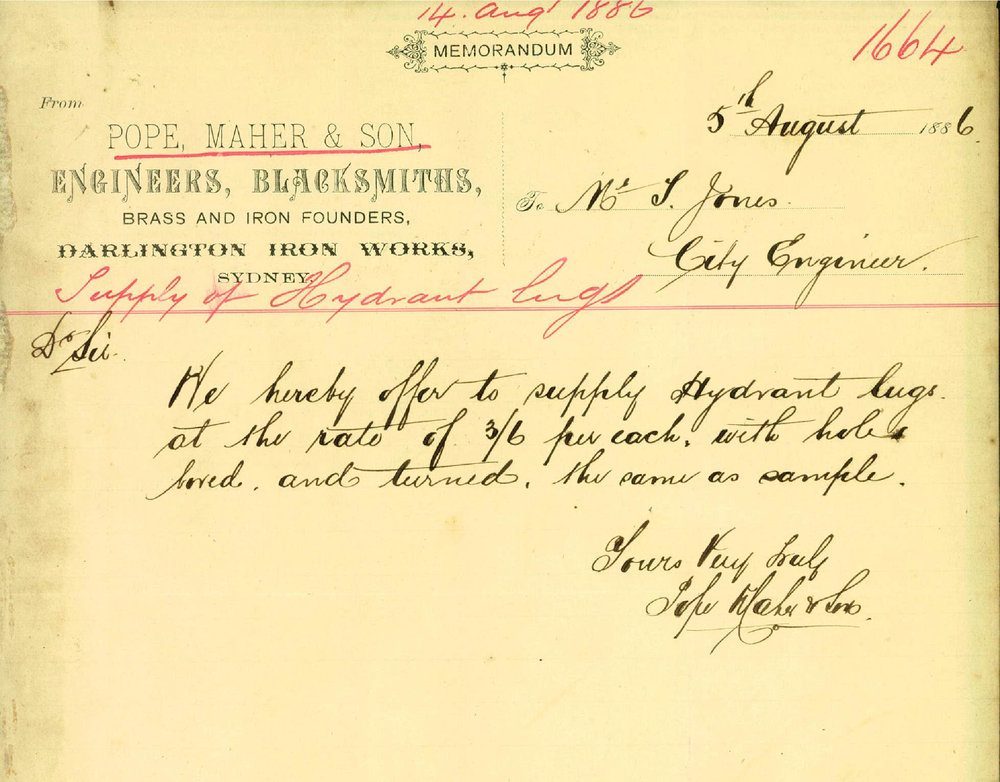 14. Augt 1886
MEMORANDUM
1664
From
POPE, MAHER & SON,
ENGINEERS, BLACKSMITHS,
BRASS AND IRON FOUNDERS,
DARLINGTON IRON WORKS,
SYDNEY
5th August 1886
To Mr S. Jones.
City Engineer.
Supply of Hydrant lugs
Dr Sir.
We hereby offer to supply Hydrant lugs.
at the rate of 3/6 per each. with hole
bored. and turned. the same as sample.
Yours Very truly
Pope Maher & Son.